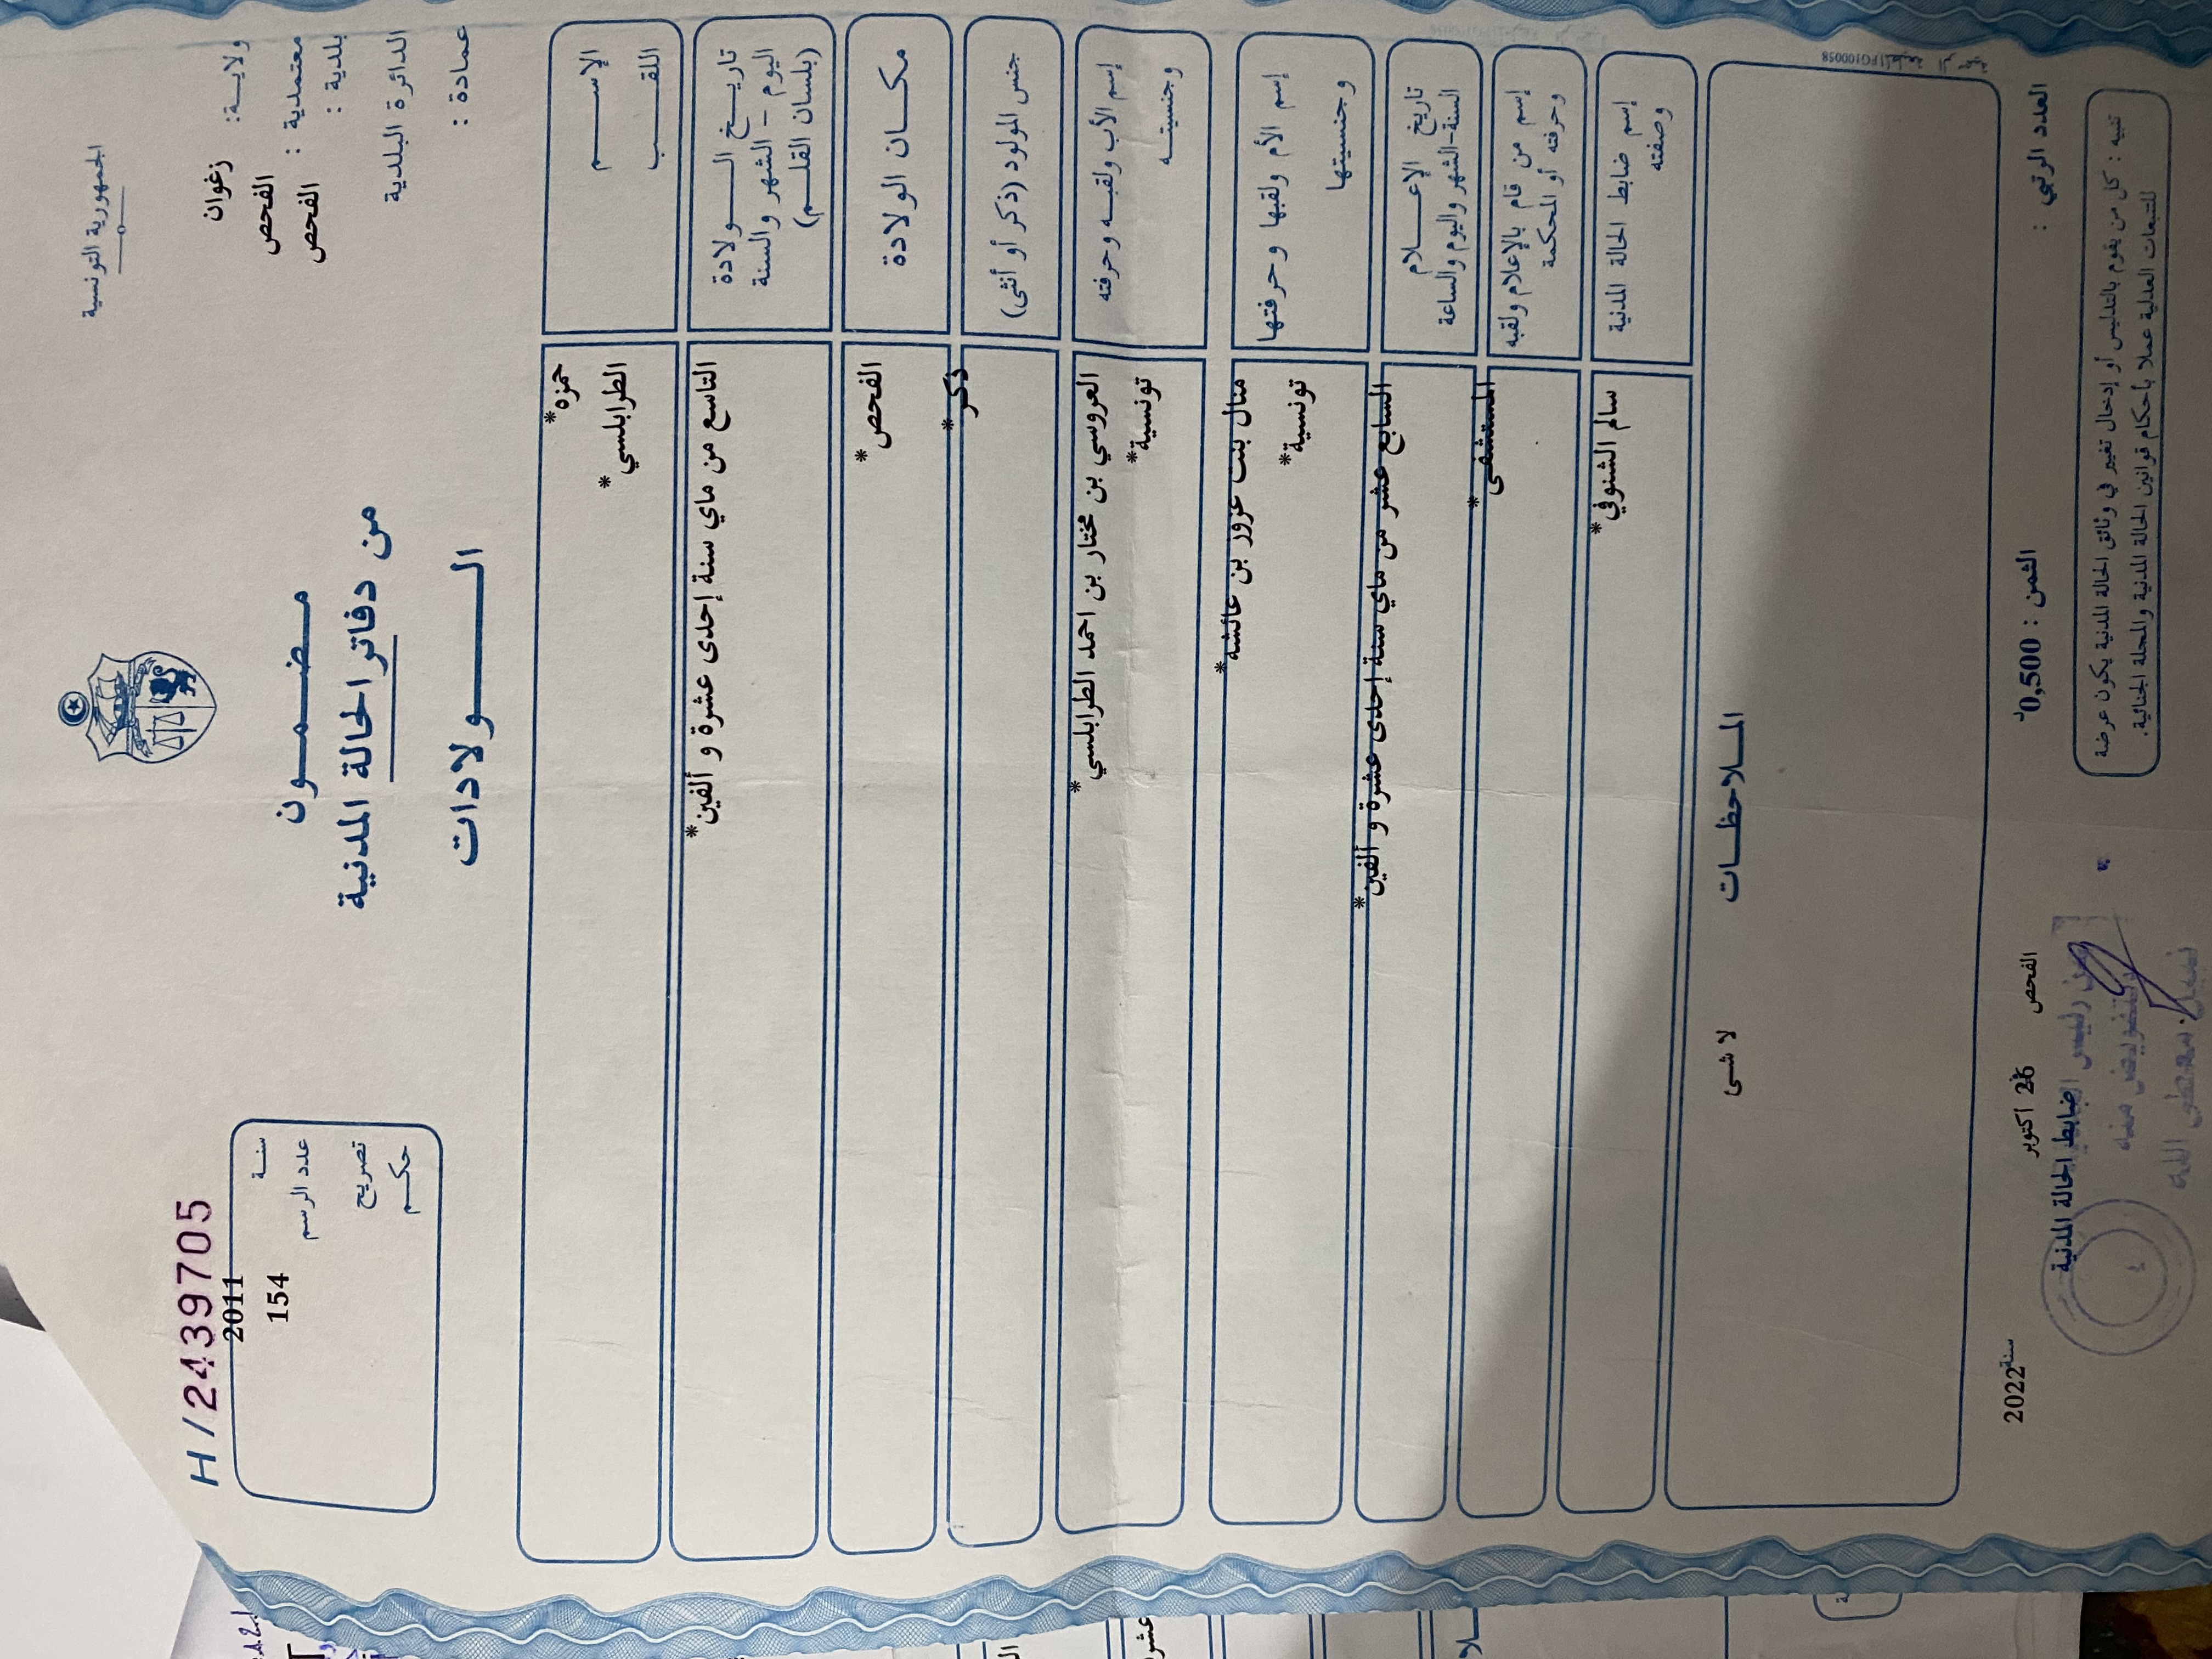 الجمهورية التونسية
ولايـة: زغوان
معتمدية : الفحص
بلدية : الفحص
الدائرة البلدية
عمادة :
مضمــون
من دفاتر الحالة المدنية
الــولادات
H/2439705
سنـة 2011
عدد الرسم 154
تصريح
حكـم
الإســم حمزه*
اللقـب الطرابلسي*
تاريـخ الـولادة
اليوم - الشهر والسنة
(بلسان القلـم)
التاسع من ماي سنة إحدى عشرة و ألفين*
مكـان الولادة الفحص*
جنس المولود (ذكر أو أنثى) ذكر*
إسم الأب ولقبـه وحرفته العروسي بن مختار بن احمد الطرابلسي*
وجنسيتـه تونسية*
إسم الأم ولقبها وحرفتها منال بنت عزوز بن عائشه*
وجنسيتها تونسية*
تاريخ الإعـلام
السنة-الشهر واليوم والساعة
السابع عشر من ماي سنة إحدى عشرة و ألفين*
إسم من قام بالإعلام ولقبه
وحرفته أو المحكمة
المستشفى*
إسم ضابط الحالة المدنية
وصفته
سالم الشنوفي*
المـلاحظـات
لا شى
المطبعة الرسمية FG100058
العدد الرتبي :
الثمن : 0,500د
الفحص في 26 اكتوبر سنة 2022
ضابط الحالة المدنية
عن رئيس
وبتفويض منه
تنبيه : كل من يقوم بالتدليس أو إدخال تغيير في وثائق الحالة المدنية يكون عرضة
للتتبعات العدلية عملا بأحكام قوانين الحالة المدنية والمجلة الجنائية.